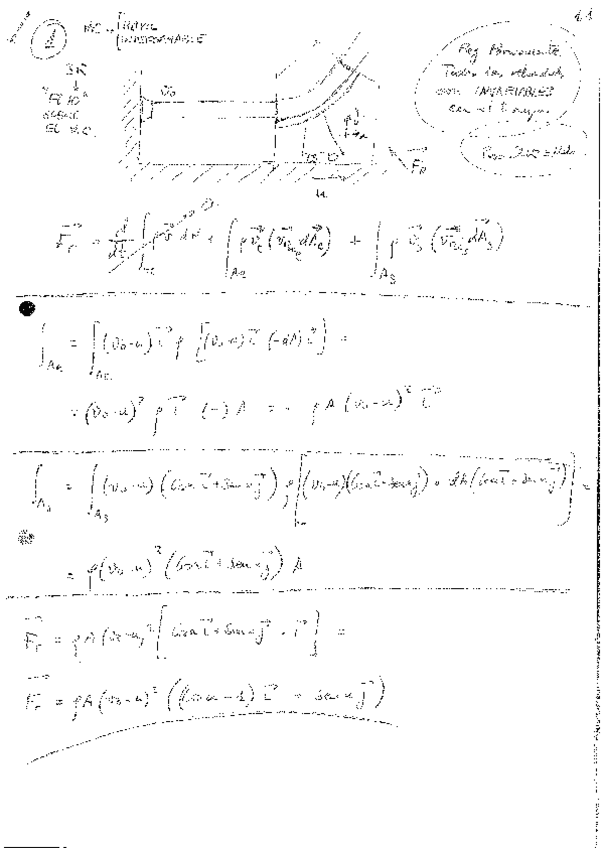 1.1
1
VC { MOVIL
INDEFORMABLE
SR
"FIJO"
SIGUE
EL V.C.
v₀
Reg Permanente
Todas las velocidades
son INVARIABLES
en el tiempo
F_R
u
F⃗_r = d/dt ∫_VC ρ v⃗ dV + ∫_Ae ρ v⃗_e (v⃗_re dA⃗_e) + ∫_As ρ v⃗_s (v⃗_rs dA⃗_s)
∫_Ae = ∫_Ae (v₀-u) i⃗ ρ [(v₀-u) i⃗ (-dA) i⃗] =
= (v₀-u)² ρ i⃗ (-) A = - ρA (v₀-u)² i⃗
∫_As = ∫_As (v₀-u) (Cosα i⃗ + Senα j⃗) ρ [(v₀-u)(Cosα i⃗ + Senα j⃗) · dA (Cosα i⃗ + Senα j⃗)] =
= ρ(v₀-u)² (Cosα i⃗ + Senα j⃗) A
F⃗_r = ρA (v₀-u)² [Cosα i⃗ + Senα j⃗ - i⃗] =
F⃗_r = ρA (v₀-u)² ((Cosα - 1) i⃗ + Senα j⃗)